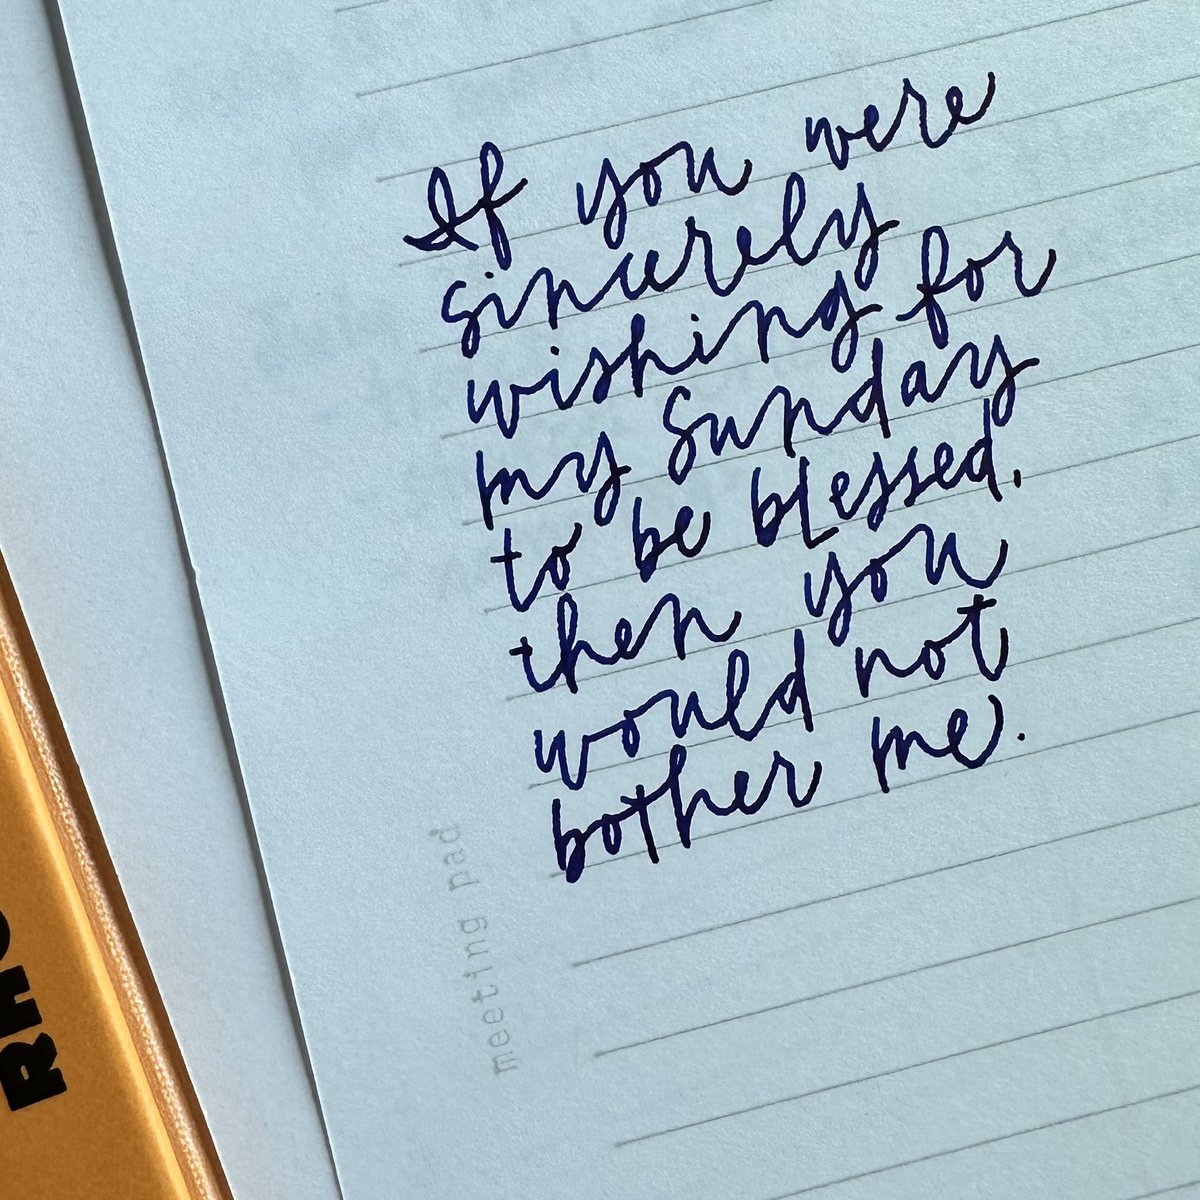 If you were
sincerely
wishing for
my Sunday
to be blessed,
then you
would not
bother me.
meeting pad
RHO